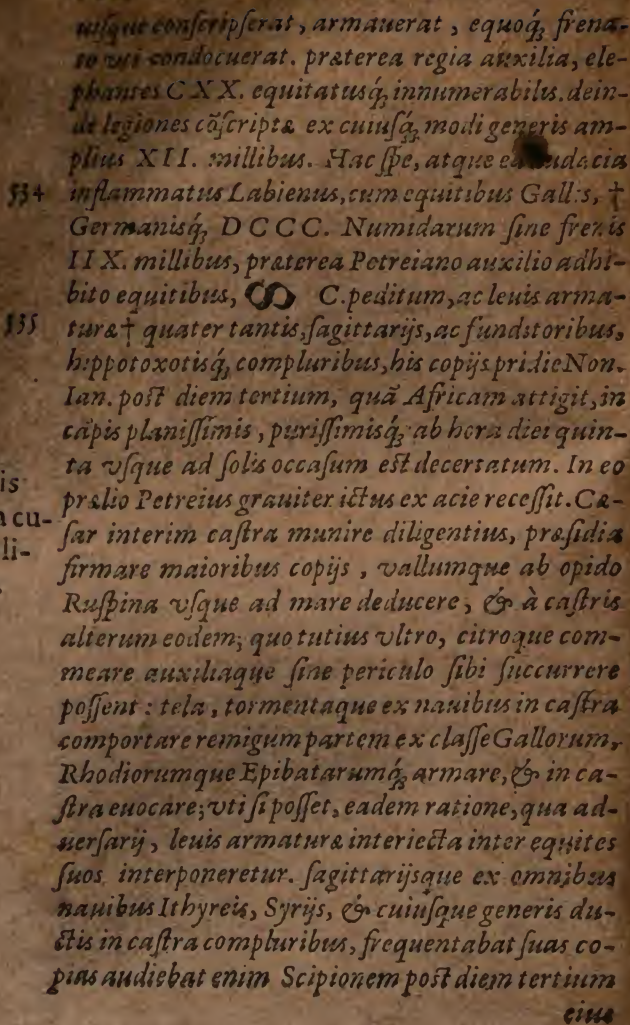 uisque conſcripſerat, armauerat, equoq́; frena-
to vti condocuerat. præterea regia auxilia, ele-
phantes CXX. equitatusq́; innumerabilis. dein-
de legiones cõſcriptæ ex cuiuſq́; modi generis am-
plius XII. millibus. Hac ſpe, atque ea audacia
534 inflammatus Labienus, cum equitibus Gallis, †
Germanisq́; DCCC. Numidarum ſine frenis
IIX. millibus, præterea Petreiano auxilio adhi-
bito equitibus, ↀ C. peditum, ac leuis arma-
535 turæ † quater tantis, ſagittarijs, ac funditoribus,
hippotoxotisq́; compluribus, his copijs pridie Non.
Ian. poſt diem tertium, quã Africam attigit, in
cãpis planiſſimis, puriſſimisq́; ab hora diei quin-
ta vſque ad ſolis occaſum eſt decertatum. In eo
prælio Petreius grauiter ictus ex acie receſſit. Cæ-
ſar interim caſtra munire diligentius, præſidia
firmare maioribus copijs, vallumque ab opido
Ruſpina vſque ad mare deducere, & à caſtris
alterum eodem; quo tutius vltro, citroque com-
meare auxiliaque ſine periculo ſibi ſuccurrere
poſſent: tela, tormentaque ex nauibus in caſtra
comportare remigum partem ex claſſe Gallorum,
Rhodiorumque Epibatarumq́; armare, & in ca-
ſtra euocare; vti ſi poſſet, eadem ratione, qua ad-
uerſarij, leuis armatura interiecta inter equites
ſuos interponeretur. ſagittarijsque ex omnibus
nauibus Ithyreis, Syrijs, & cuiuſque generis du-
ctis in caſtra compluribus, frequentabat ſuas co-
pias audiebat enim Scipionem poſt diem tertium
eius
is
acu-
li-